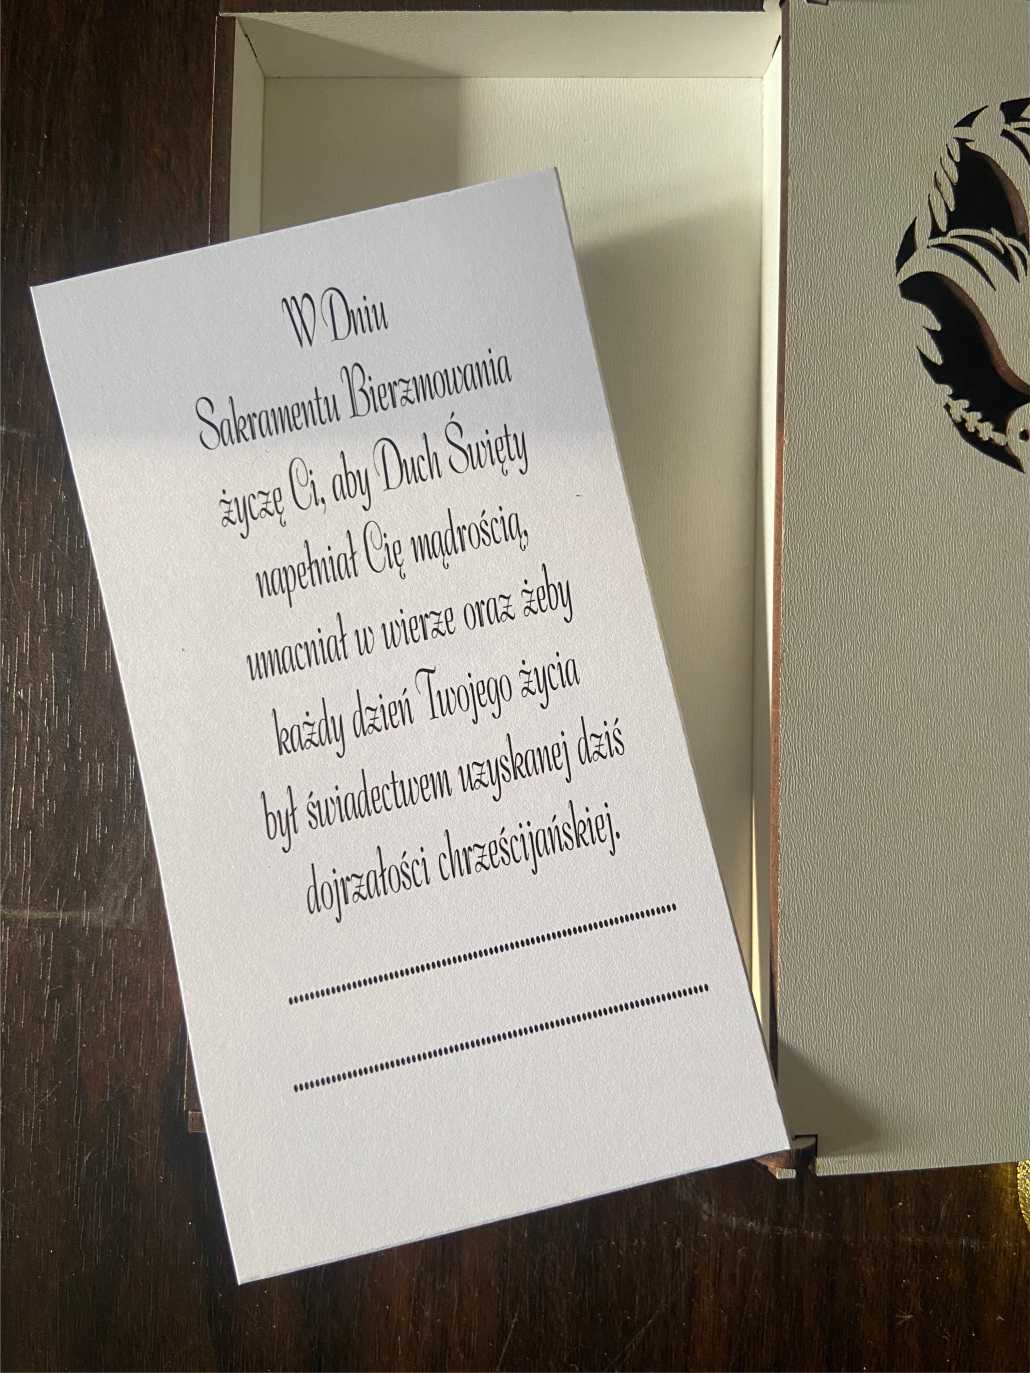 W Dniu
Sakramentu Bierzmowania
życzę Ci, aby Duch Święty
napełniał Cię mądrością,
umacniał w wierze oraz żeby
każdy dzień Twojego życia
był świadectwem uzyskanej dziś
dojrzałości chrześcijańskiej.